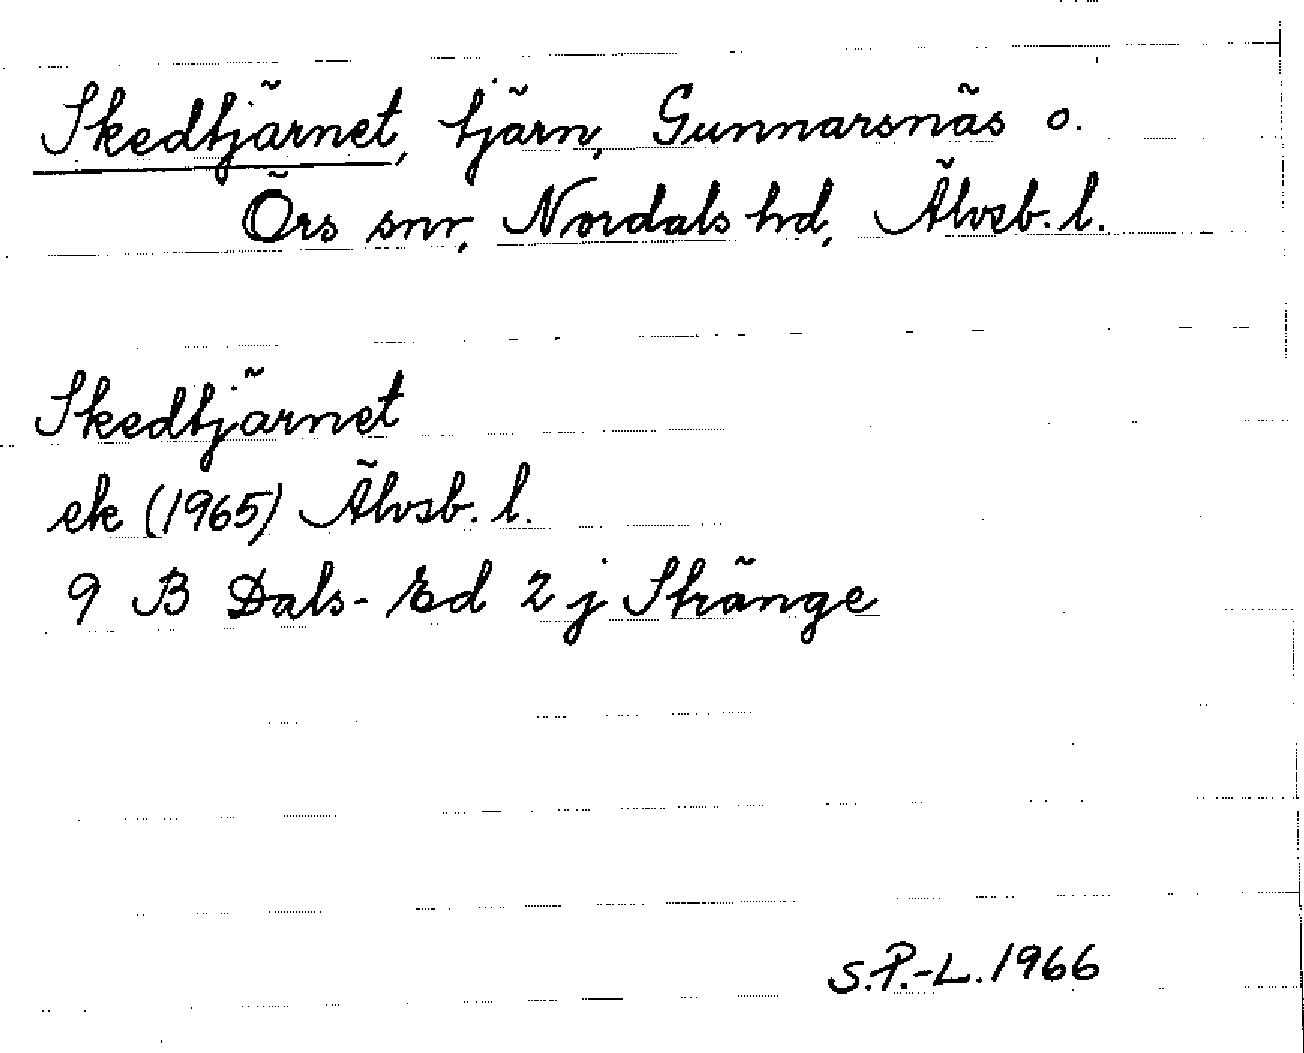 Skedtjärnet, tjärn, Gunnarsnäs o.
Örs snr, Nordals hd, Älvsb. l.
Skedtjärnet
ek (1965) Älvsb. l.
9 B Dals-Ed 2 j Stränge
S.P.-L. 1966